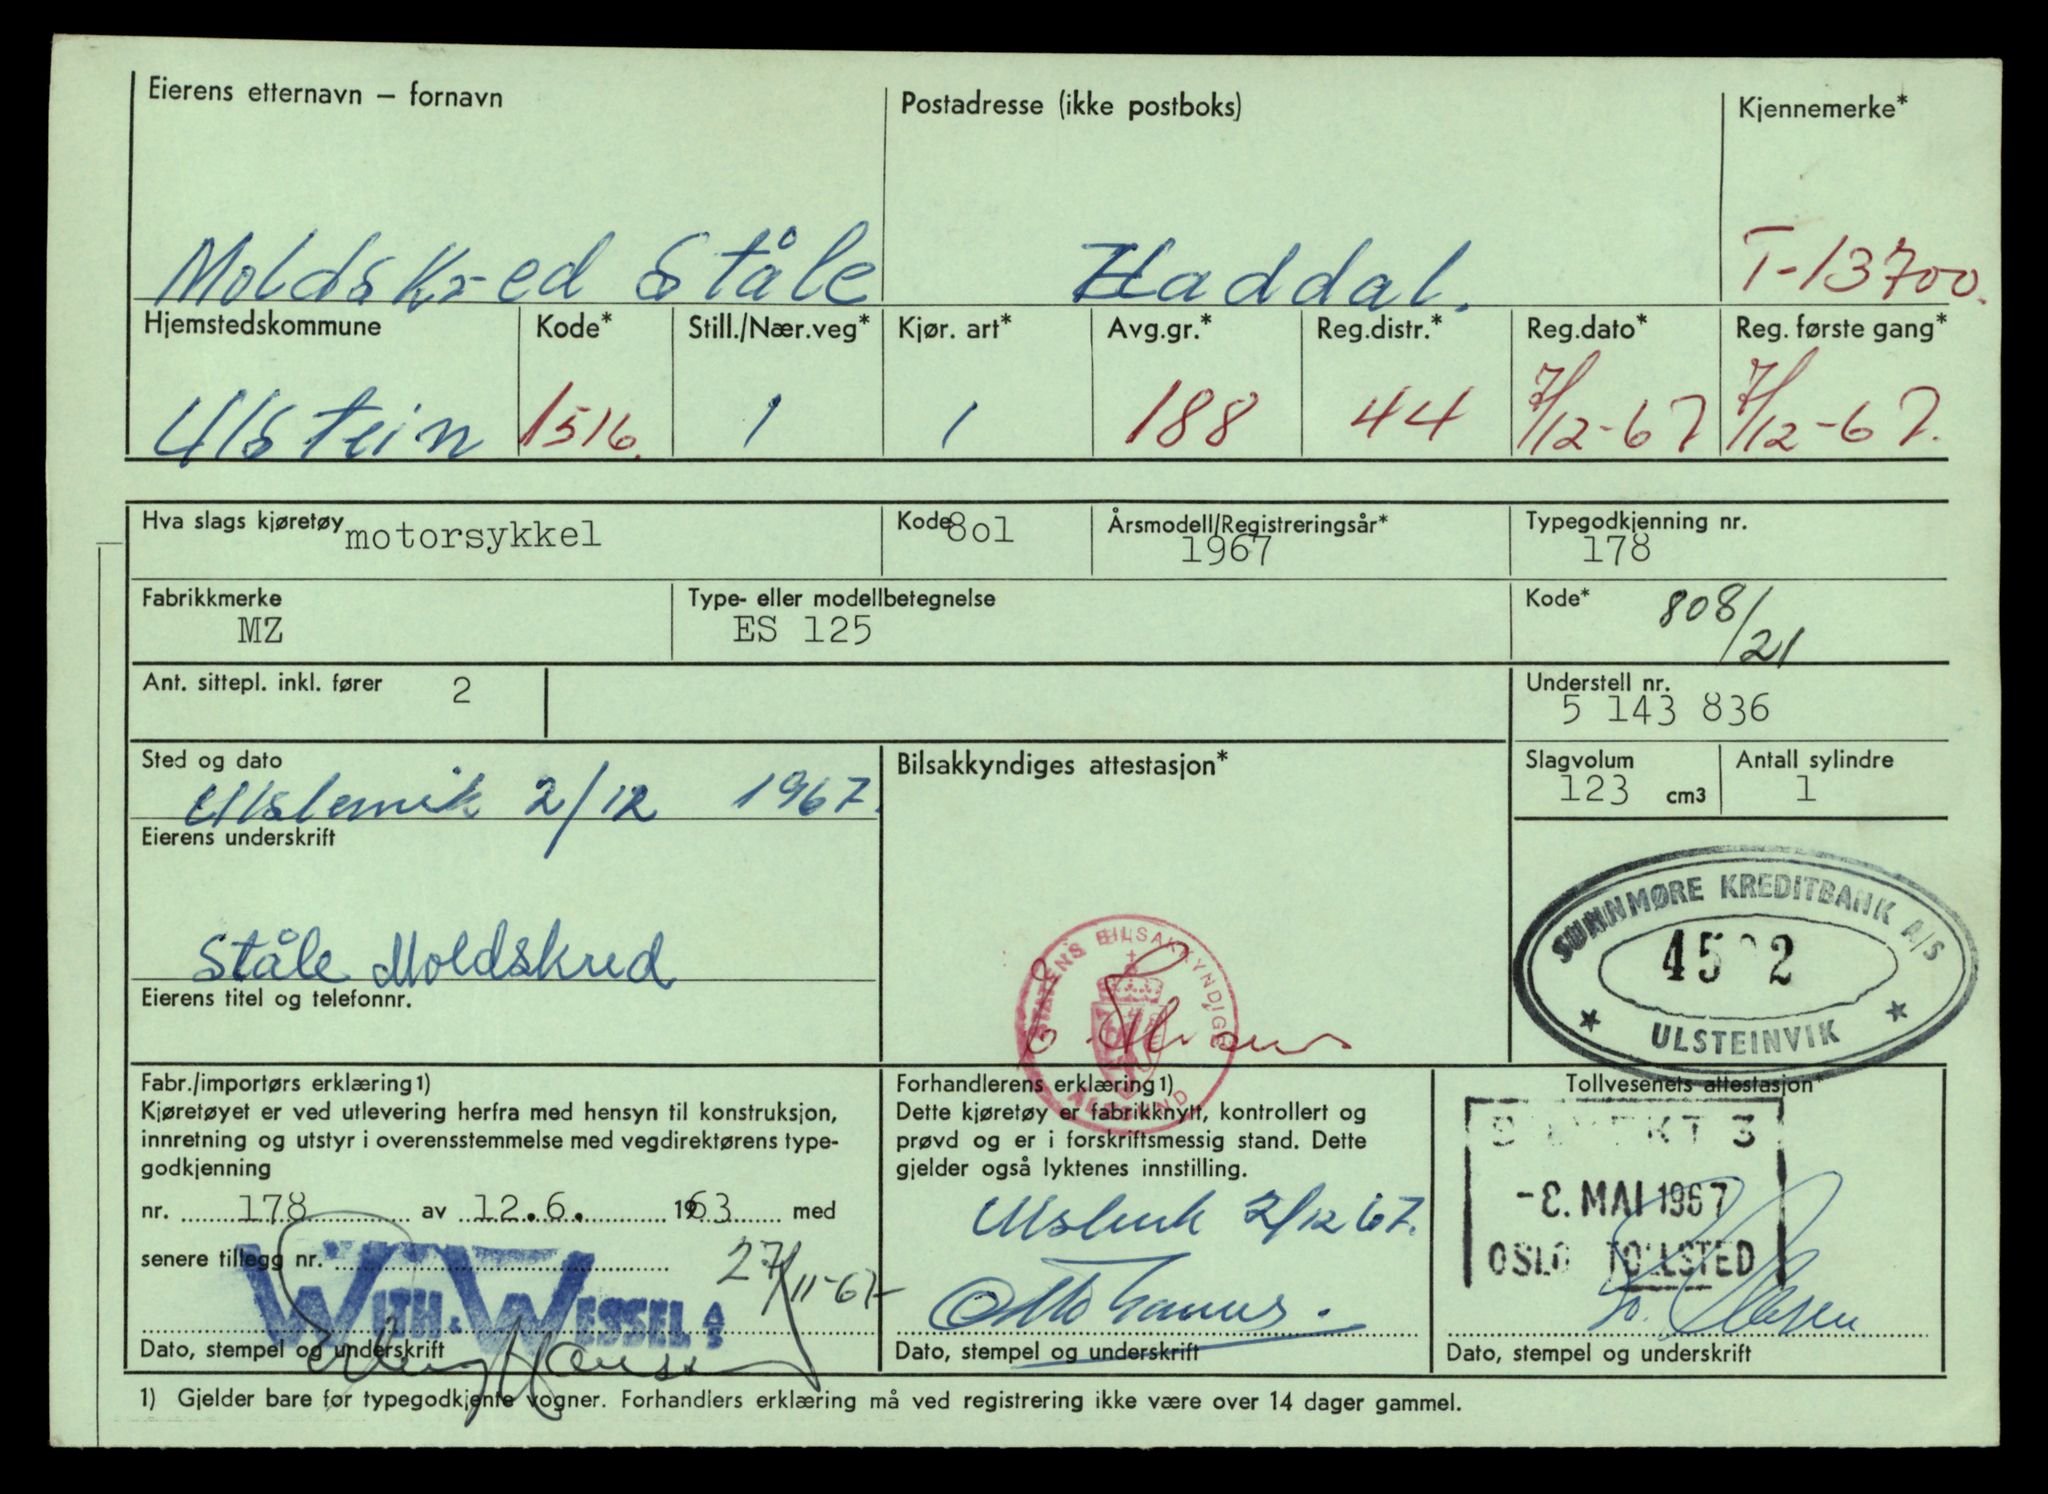 Eierens etternavn – fornavn
Postadresse (ikke postboks)
Kjennemerke*
Moldskred Ståle
Haddal.
T-13700.
Hjemstedskommune
Kode*
Still./Nær.veg*
Kjør. art*
Avg.gr.*
Reg.distr.*
Reg.dato*
Reg. første gang*
Ulstein
1516.
1
1
188
44
7/12-67
7/12-67.
Hva slags kjøretøy motorsykkel
Kode 8o1
Årsmodell/Registreringsår*
1967
Typegodkjenning nr.
178
Fabrikkmerke
MZ
Type- eller modellbetegnelse
ES 125
Kode* 808/21
Ant. sittepl. inkl. fører 2
Understell nr.
5 143 836
Sted og dato
2/12 1967.
Bilsakkyndiges attestasjon*
Slagvolum
123 cm3
Antall sylindre
1
Eierens underskrift
Ståle Moldskred
Eierens titel og telefonnr.
STATENS BILSAKKYNDIGE
ÅLESUND
SUNNMØRE KREDITBANK A/S
ULSTEINVIK
Fabr./importørs erklæring1)
Kjøretøyet er ved utlevering herfra med hensyn til konstruksjon,
innretning og utstyr i overensstemmelse med vegdirektørens type-
godkjenning
nr. 178 av 12.6. 1963 med
senere tillegg nr.
27/11-67-
WITH & WESSEL A/S
Dato, stempel og underskrift
Forhandlerens erklæring1)
Dette kjøretøy er fabrikknytt, kontrollert og
prøvd og er i forskriftsmessig stand. Dette
gjelder også lyktenes innstilling.
2/12 67.
Dato, stempel og underskrift
Tollvesenets attestasjon*
-8. MAI 1967
OSLO TOLLSTED
Dato, stempel og underskrift
1) Gjelder bare for typegodkjente vogner. Forhandlers erklæring må ved registrering ikke være over 14 dager gammel.